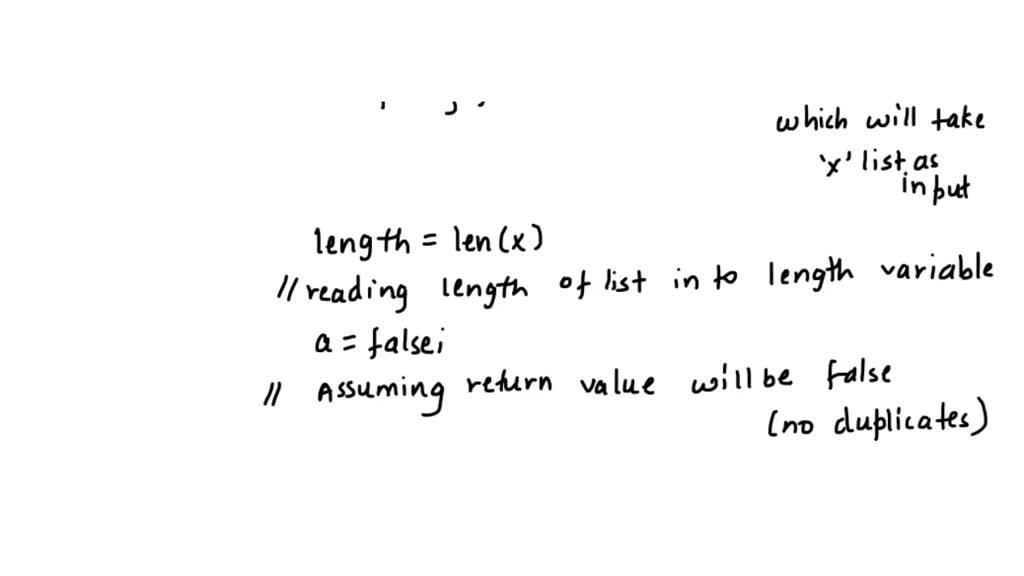 which will take
'x' list as
input
length = len(x)
// reading length of list in to length variable
a = false;
// Assuming return value will be false
(no duplicates)